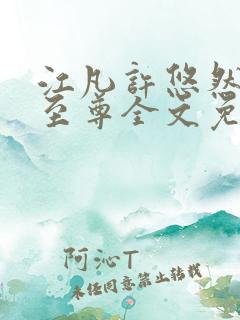 江凡許悠然
至尊全文免
阿沁T
未经同意禁止转载